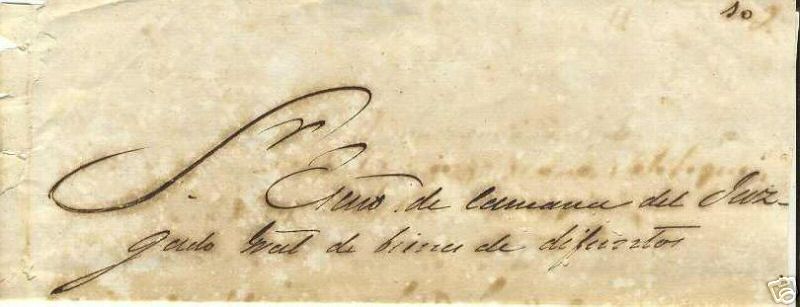 S.r Esc.no de camara del Juz-
gado Gral de bienes de difuntos